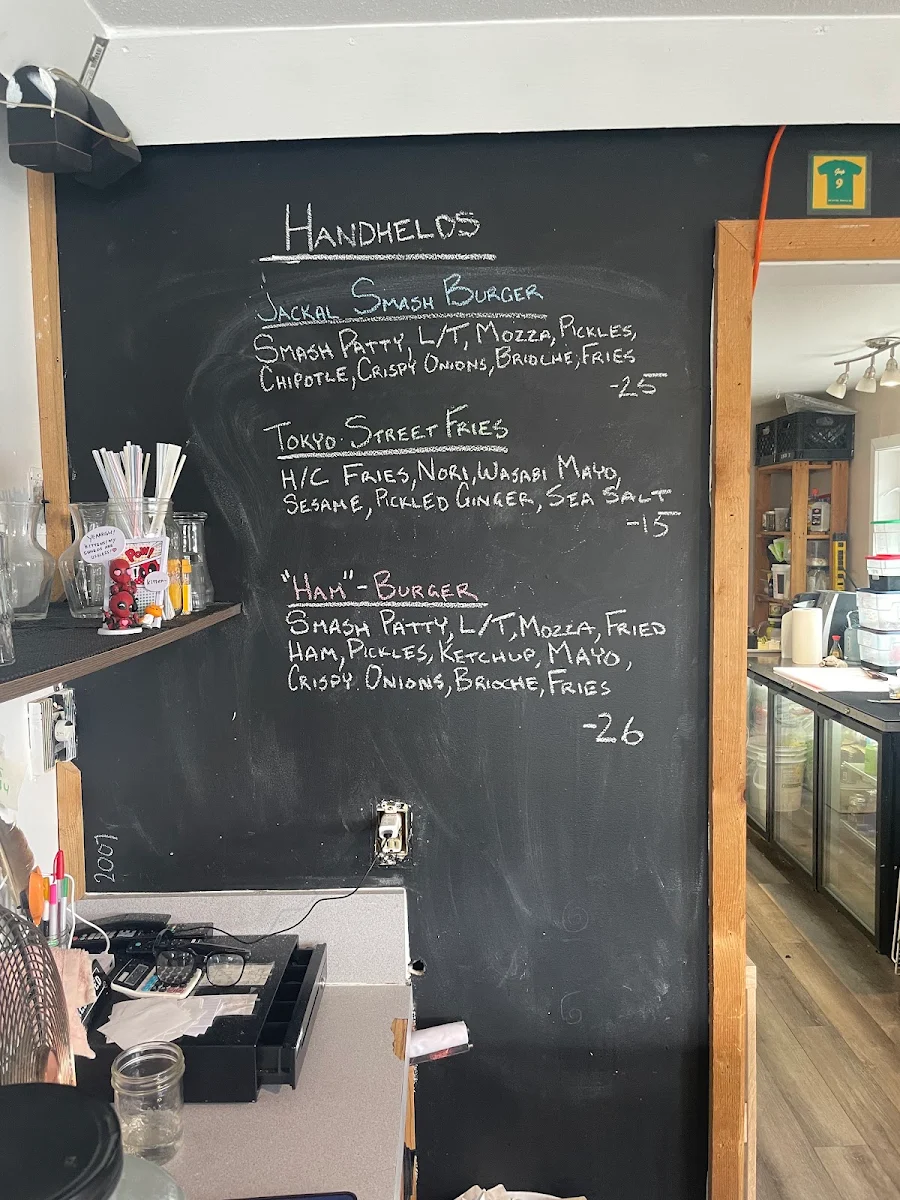 HANDHELDS
JACKAL SMASH BURGER
SMASH PATTY, L/T, MOZZA, PICKLES,
CHIPOTLE, CRISPY ONIONS, BRIOCHE, FRIES
-25
TOKYO STREET FRIES
H/C FRIES, NORI, WASABI MAYO,
SESAME, PICKLED GINGER, SEA SALT
-15
"HAM"-BURGER
SMASH PATTY, L/T, MOZZA, FRIED
HAM, PICKLES, KETCHUP, MAYO,
CRISPY ONIONS, BRIOCHE, FRIES
-26
2007
9
POW!